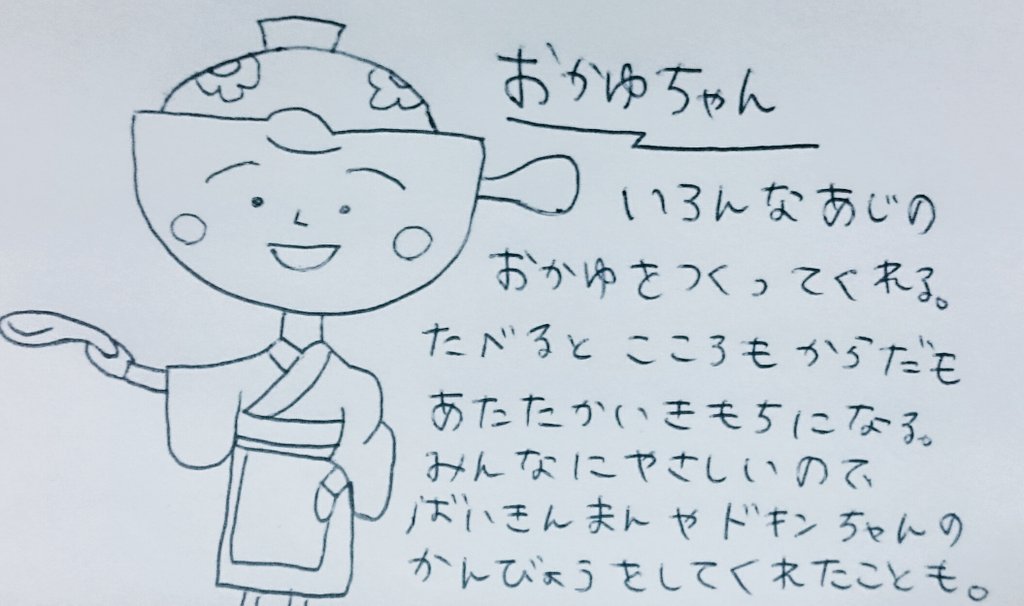 おかゆちゃん
いろんなあじの
おかゆをつくってくれる。
たべると こころもからだも
あたたかいきもちになる。
みんなにやさしいので、
ばいきんまんやドキンちゃんの
かんびょうをしてくれたことも。